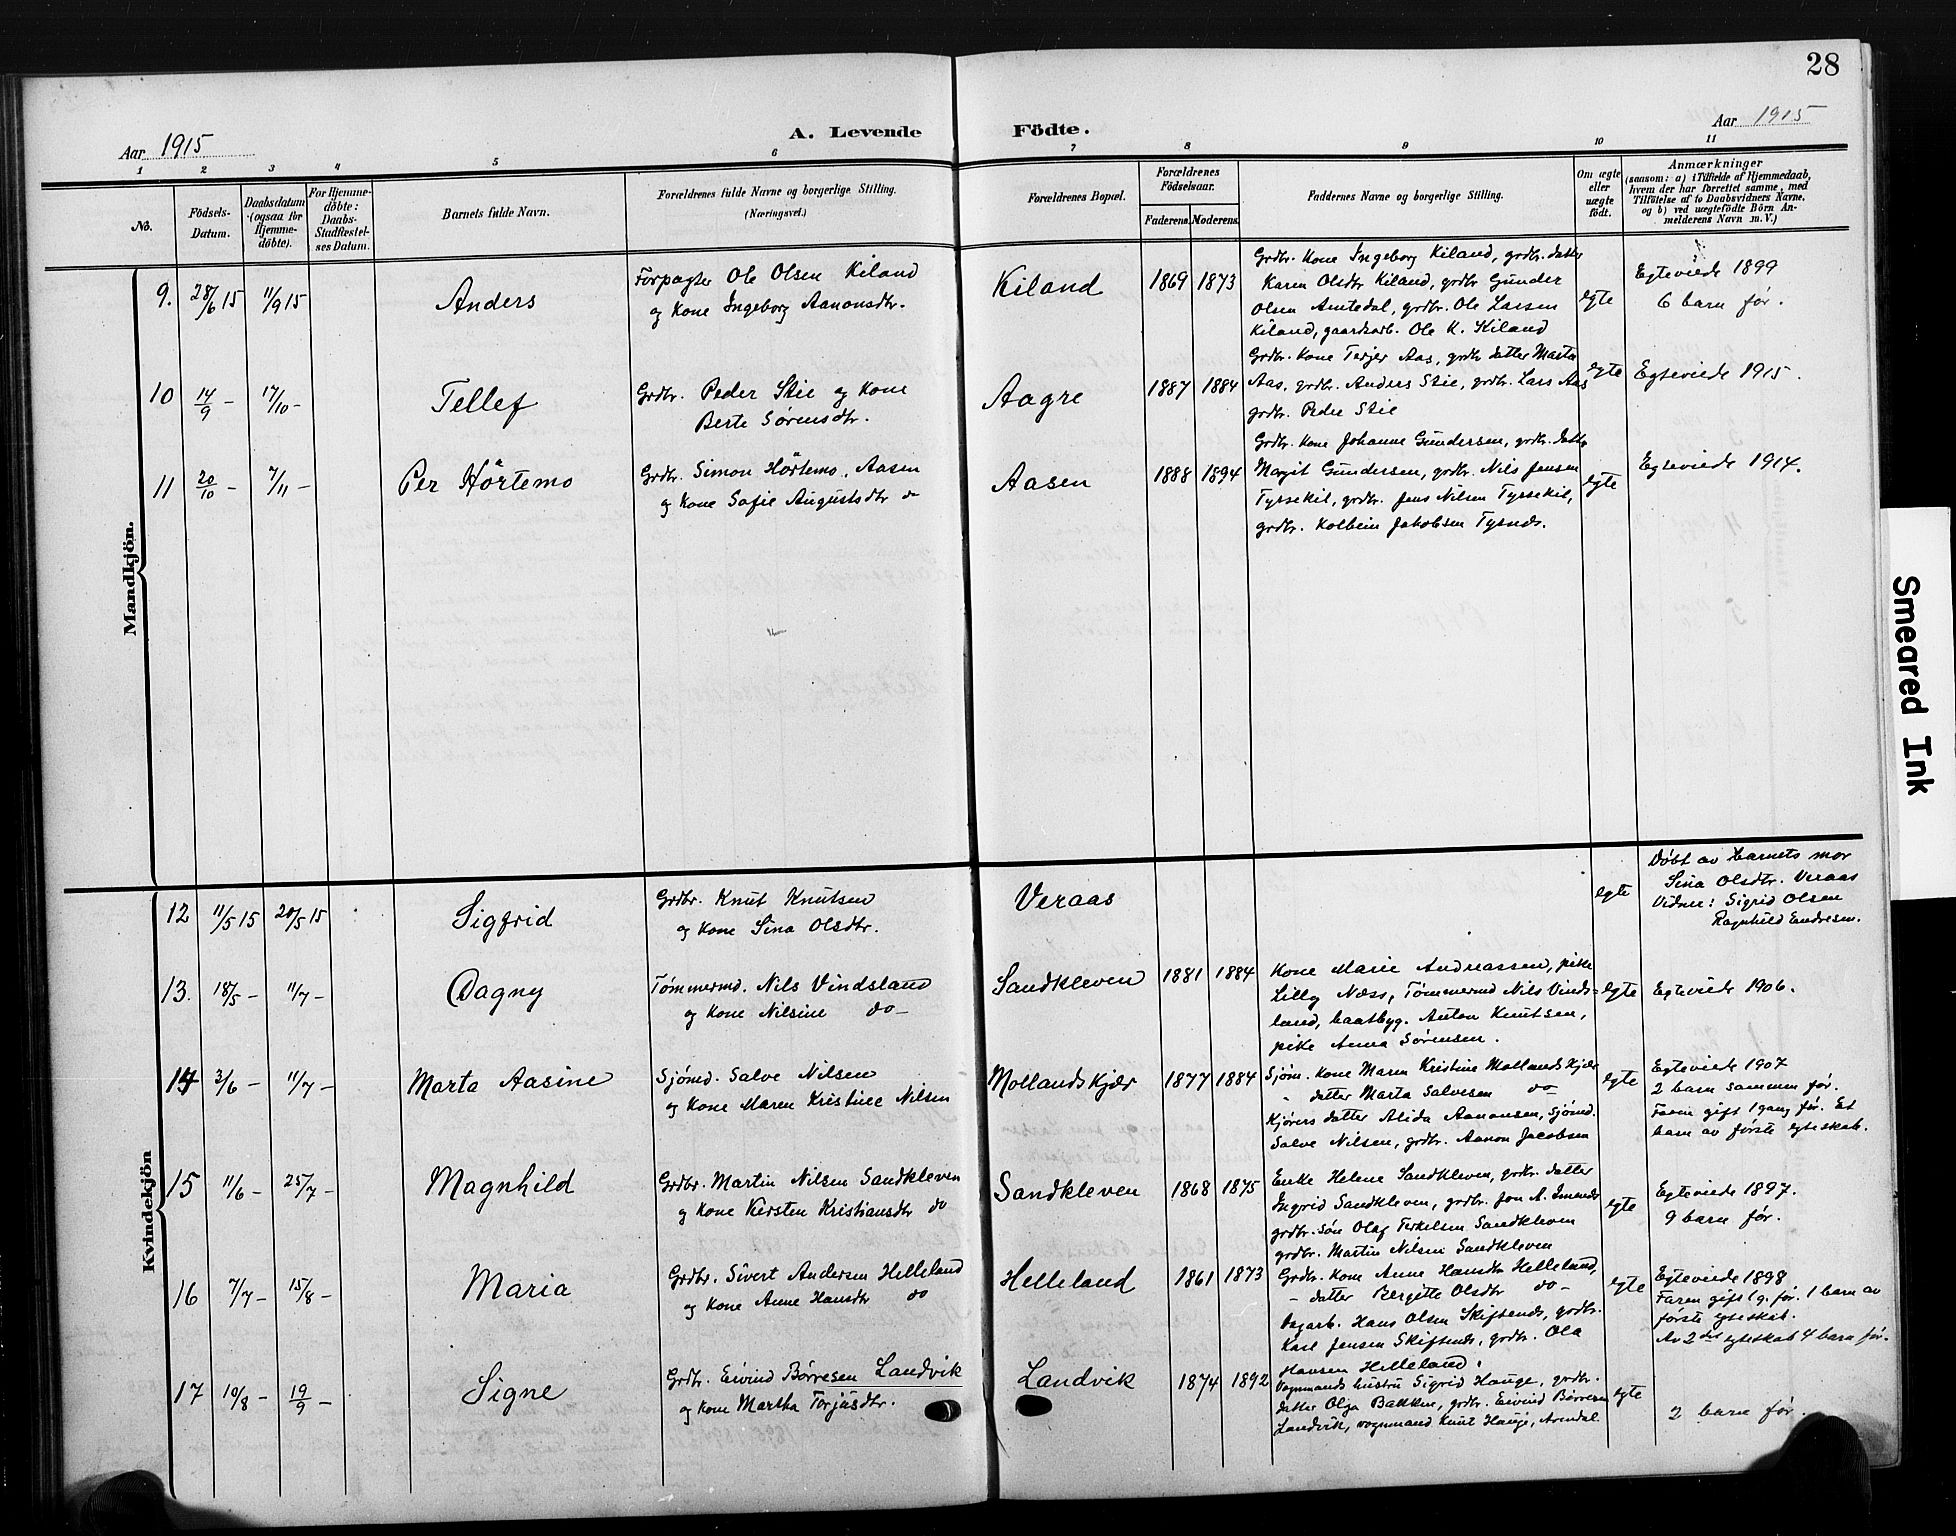 28
Aar 1915
A. Levende Födte.
Aar 1915
1 2 3 4 5 6 7 8 9 10 11
No.
Födsels-
Datum.
Daabsdatum
(ogsaa for
Hjemme-
döbte).
For Hjemme-
döbte:
Daabs-
Stadfæstel-
ses Datum.
Barnets fulde Navn.
Forældrenes fulde Navne og borgerlige Stilling.
(Næringsvei.)
Forældrenes Bopæl.
Forældrenes
Födselsaar.
Faderens.
Moderens.
Faddernes Navne og borgerlige Stilling.
Om ægte
eller
uægte
födt.
Anmærkninger
(saasom: a) i Tilfælde af Hjemmedaab,
hvem der har forrettet samme, med
Tilföielse af to Daabsvidners Navne,
og b) ved uægtefödte Börn An-
melderens Navn m. V.)
Mandkjön.
9. 28/6 15 11/9 15
Anders
Forpagter Ole Olsen Kiland
og Kone Ingeborg Aanonsdtr.
Kiland
1869 1873
Grdbr. Kone Ingeborg Kiland, grdbr. datter
Karen Olsdtr Kiland, grdbr Gunder
Olsen Amtedal, grdbr. Ole Larsen
Kiland, gaardsarb. Ole K. Kiland
egte
Egteviede 1899
6 barn før.
10 14/9 - 17/10 -
Tellef
Grdbr. Peder Stie og Kone
Berte Sørensdtr.
Aagre
1887 1884
Grdbr. Kone Terjer Aas, grdbr datter Marta
Aas, grdbr. Anders Stie, grdbr. Lars Aas
grdbr. Peder Stie
egte
Egteviede 1915.
11 20/10 - 7/11 -
Per Hörtemo
Grdbr. Simon Hörtemo, Aasen
og Kone Sofie Augustsdtr do
Aasen
1888 1894
Grdbr. Kone Johanne Gundersen, grdbr. datter
Margit Gundersen, grdbr. Nils Jensen
Tyssekil, grdbr. Jens Nilsen Tyssekil,
grdbr. Kolbein Jakobsen Tysnes.
egte
Egteviede 1914.
Kvindekjön
12 11/5 15 20/5 15
Sigfrid
Grdbr. Knut Knutsen
og Kone Sina Olsdtr.
Veraas
egte
Døbt av barnets mor
Sina Olsdtr. Veraas
Vidner: Sigrid Olsen
Ragnhild Endresen.
13. 18/5 - 11/7 -
Dagny
Tømmermd. Nils Vindsland
og Kone Nilsine do -
Sandkleven
1881 1884
Kone Marie Andreassen, pike
Lilly Næss, Tømmermd Nils Vinds-
land, baatbyg. Anton Knutsen,
pike Anna Sørensen.
egte
Egteviede 1906.
14 3/6 - 11/7 -
Marta Aasine
Sjömd. Salve Nilsen
og Kone Maren Kristine Nilsen
Mollandskjær
1877 1884
Sjöm. Kone Maren Kristine Mollandskjær
" datter Marta Salvesen do
Kjörers datter Alida Aanonsen, Sjömd.
Salve Nilsen, grdbr. Aanon Jacobsen
egte
Egteviede 1907
2 barn sammen før.
Faren gift 1 gang før. Et
barn av første egteskab.
15 11/6 - 25/7 -
Magnhild
Grdbr. Martin Nilsen Sandkleven
og Kone Kirsten Kristiansdtr do
Sandkleven
1868 1875
Enke Helene Sandkleven, grdbr. datter
Ingrid Sandkleven, grdbr. Jon A.
grdbr. Søn Olaf Terkelsen Sandkleven
grdbr. Martin Nilsen Sandkleven
egte
Egteviede 1897.
9 barn før.
16 7/7 - 15/8 -
Maria
Grdbr. Sivert Andersen Helleland
og Kone Anne Hansdtr do
Helleland
1861 1873
Grdbr. Kone Anne Hansdtr Helleland,
- datter Bergitte Olsdtr do -
Dagarb. Hans Olsen Skiftenes, grdbr.
Karl Jensen Skiftenes, grdbr. Ola
Hansen Helleland.
egte
Egteviede 1898
Faren gift 1 g. før. 1 barn av
første egteskab.
Av 2det egteskab 4 barn før.
17 10/8 - 19/9 -
Signe
Grdbr. Eivind Børresen Landvik
og Kone Martha Torjusdtr.
Landvik
1874 1892
Vognmands hustru Sigrid Hauge, grdbr.
datter Olga Bakken, grdbr. Eivind Børresen
Landvik, vognmand Knut Hauge, Arendal
egte
2 barn før.
Smeared Ink